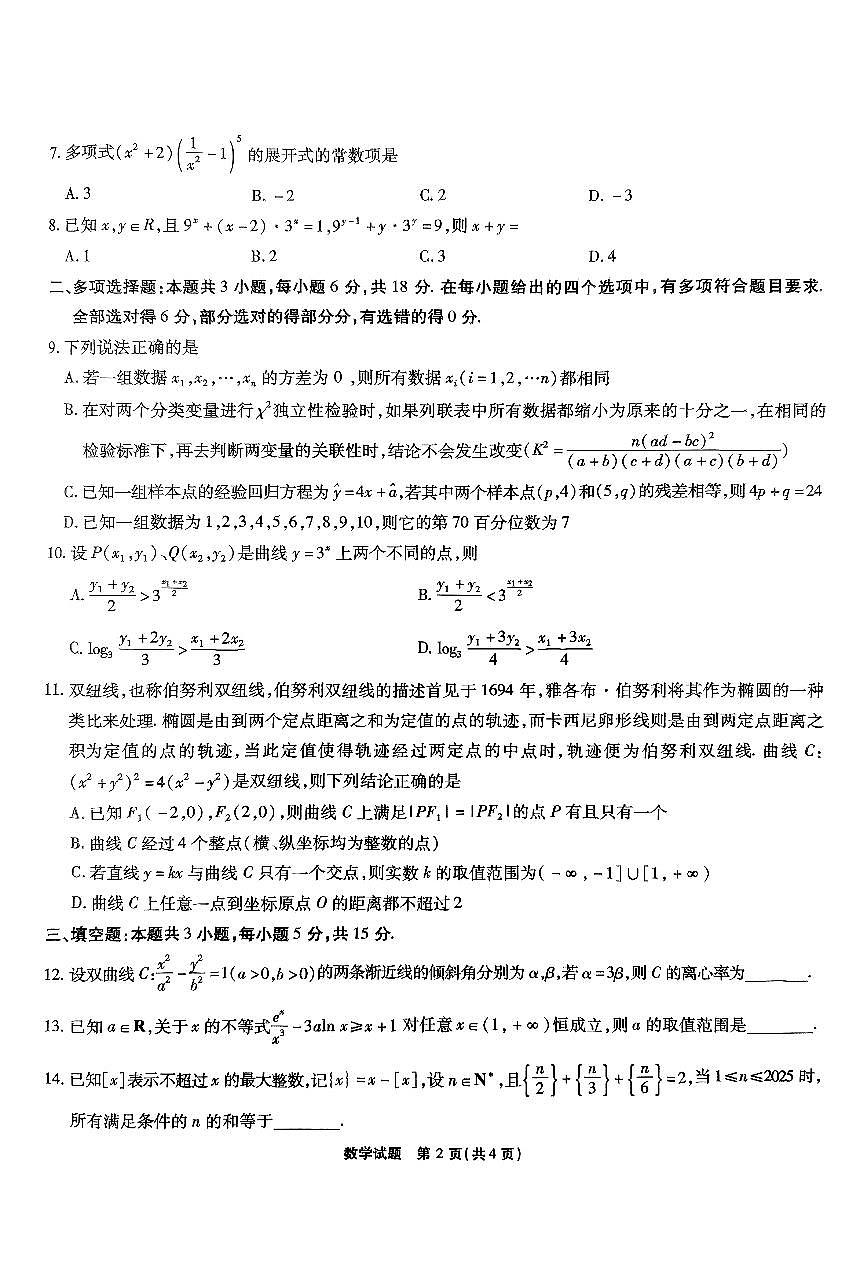 7. 多项式(x² +2)(1/x² -1)⁵ 的展开式的常数项是
A. 3 B. -2 C. 2 D. -3
8. 已知 x,y∈R,且 9ˣ + (x-2)·3ˣ =1,9ʸ⁻¹ +y·3ʸ =9,则 x+y=
A. 1 B. 2 C. 3 D. 4
二、多项选择题:本题共 3 小题,每小题 6 分,共 18 分. 在每小题给出的四个选项中,有多项符合题目要求.
全部选对得 6 分,部分选对的得部分分,有选错的得 0 分.
9. 下列说法正确的是
A. 若一组数据 x₁,x₂,⋯,xₙ 的方差为 0 ,则所有数据 xᵢ(i=1,2,⋯n)都相同
B. 在对两个分类变量进行χ²独立性检验时,如果列联表中所有数据都缩小为原来的十分之一,在相同的
检验标准下,再去判断两变量的关联性时,结论不会发生改变(K² = n(ad-bc)²/((a+b)(c+d)(a+c)(b+d)))
C. 已知一组样本点的经验回归方程为 ŷ=4x+â,若其中两个样本点(p,4)和(5,q)的残差相等,则 4p+q=24
D. 已知一组数据为 1,2,3,4,5,6,7,8,9,10,则它的第 70 百分位数为 7
10. 设 P(x₁,y₁)、Q(x₂,y₂)是曲线 y=3ˣ 上两个不同的点,则
A. (y₁+y₂)/2 > 3^((x₁+x₂)/2) B. (y₁+y₂)/2 < 3^((x₁+x₂)/2)
C. log₃ (y₁+2y₂)/3 > (x₁+2x₂)/3 D. log₃ (y₁+3y₂)/4 > (x₁+3x₂)/4
11. 双纽线,也称伯努利双纽线,伯努利双纽线的描述首见于 1694 年,雅各布·伯努利将其作为椭圆的一种
类比来处理. 椭圆是由到两个定点距离之和为定值的点的轨迹,而卡西尼卵形线则是由到两定点距离之
积为定值的点的轨迹,当此定值使得轨迹经过两定点的中点时,轨迹便为伯努利双纽线. 曲线 C:
(x²+y²)² =4(x²-y²)是双纽线,则下列结论正确的是
A. 已知 F₁(-2,0),F₂(2,0),则曲线 C 上满足|PF₁|=|PF₂|的点 P 有且只有一个
B. 曲线 C 经过 4 个整点(横、纵坐标均为整数的点)
C. 若直线 y=kx 与曲线 C 只有一个交点,则实数 k 的取值范围为(-∞,-1]∪[1,+∞)
D. 曲线 C 上任意一点到坐标原点 O 的距离都不超过 2
三、填空题:本题共 3 小题,每小题 5 分,共 15 分.
12. 设双曲线 C:x²/a² - y²/b² =1(a>0,b>0)的两条渐近线的倾斜角分别为 α,β,若 α=3β,则 C 的离心率为______.
13. 已知 a∈R,关于 x 的不等式 eˣ/x³ -3aln x≥x+1 对任意 x∈(1,+∞)恒成立,则 a 的取值范围是______.
14. 已知[x]表示不超过 x 的最大整数,记{x}=x-[x],设 n∈N*,且{n/2}+{n/3}+{n/6}=2,当 1≤n≤2025 时,
所有满足条件的 n 的和等于______.
数学试题 第 2 页(共 4 页)